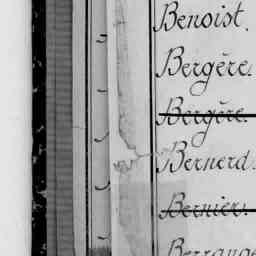 Benoist.
Bergère.
Bergère.
Bernerd.
Bernier.